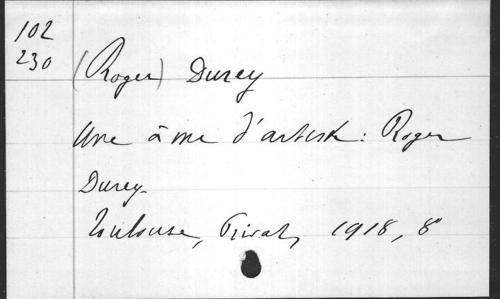 102
230
(Roger) Durey
Une âme d'artiste : Roger
Durey.
Toulouse, Privat, 1918, 8°